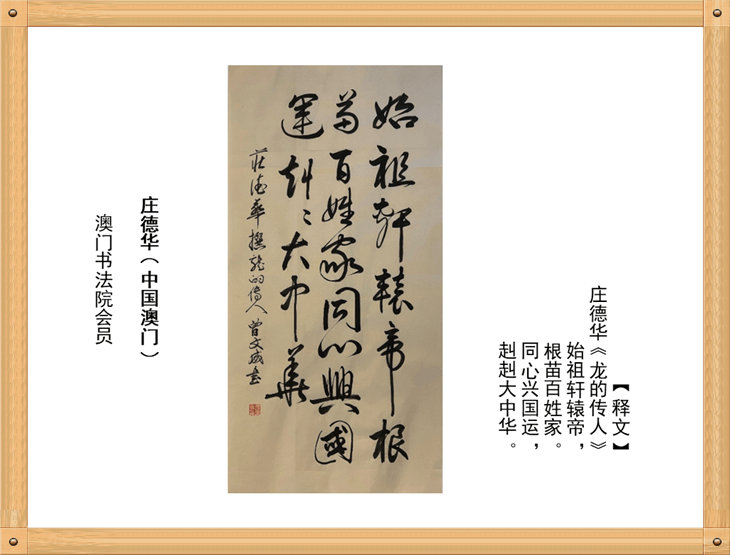 【释文】
庄德华《龙的传人》
始祖轩辕帝，
根苗百姓家。
同心兴国运，
赳赳大中华。
始祖軒轅帝根
苗百姓家同心興國
運赳〻大中華
莊德華撰龍的傳人 曾文城書
庄德华（中国澳门）
澳门书法院会员